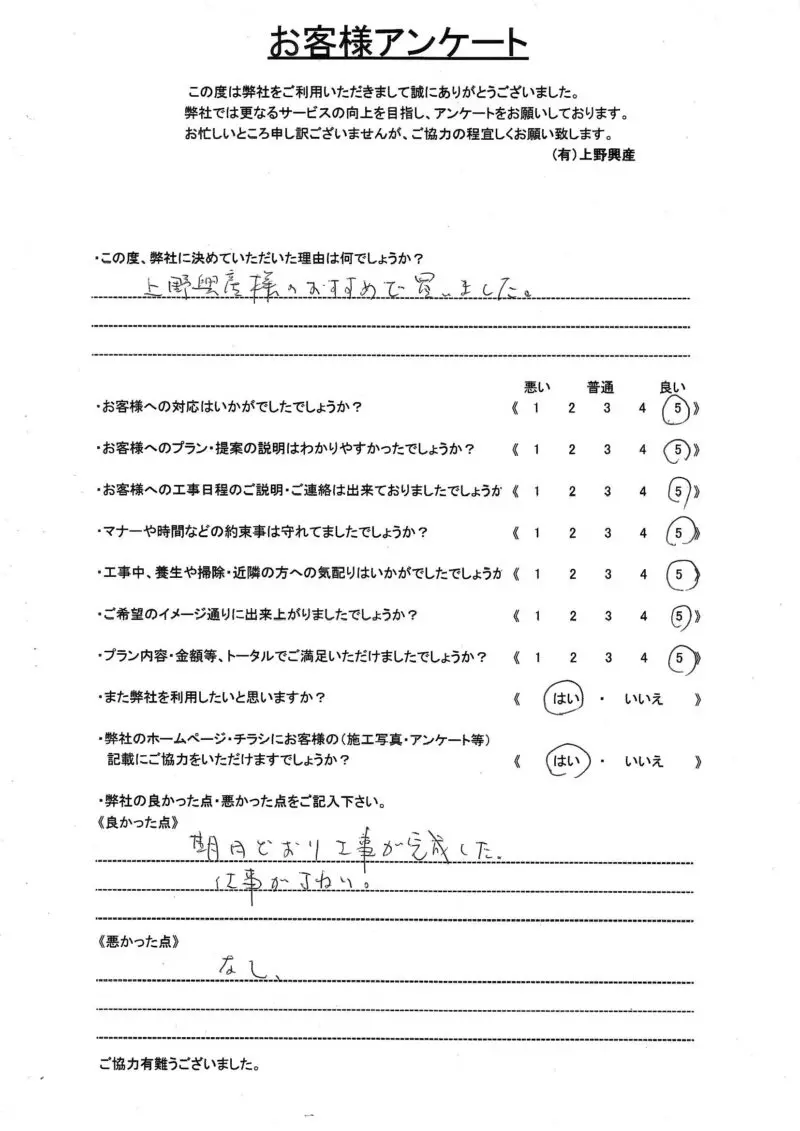 お客様アンケート
この度は弊社をご利用いただきまして誠にありがとうございました。
弊社では更なるサービスの向上を目指し、アンケートをお願いしております。
お忙しいところ申し訳ございませんが、ご協力の程宜しくお願い致します。
(有)上野興産
・この度、弊社に決めていただいた理由は何でしょうか？
上野興産様のおすすめで買いました。
悪い 普通 良い
・お客様への対応はいかがでしたでしょうか？ 《 1 2 3 4 5 》
・お客様へのプラン・提案の説明はわかりやすかったでしょうか？ 《 1 2 3 4 5 》
・お客様への工事日程のご説明・ご連絡は出来ておりましたでしょうか 《 1 2 3 4 5 》
・マナーや時間などの約束事は守れてましたでしょうか？ 《 1 2 3 4 5 》
・工事中、養生や掃除・近隣の方への気配りはいかがでしたでしょうか 《 1 2 3 4 5 》
・ご希望のイメージ通りに出来上がりましたでしょうか？ 《 1 2 3 4 5 》
・プラン内容・金額等、トータルでご満足いただけましたでしょうか？ 《 1 2 3 4 5 》
・また弊社を利用したいと思いますか？ 《 はい ・ いいえ 》
・弊社のホームページ・チラシにお客様の(施工写真・アンケート等)
記載にご協力をいただけますでしょうか？ 《 はい ・ いいえ 》
・弊社の良かった点・悪かった点をご記入下さい。
《良かった点》
期日どおり工事が完成した。
仕事がきれい。
《悪かった点》
なし、
ご協力有難うございました。